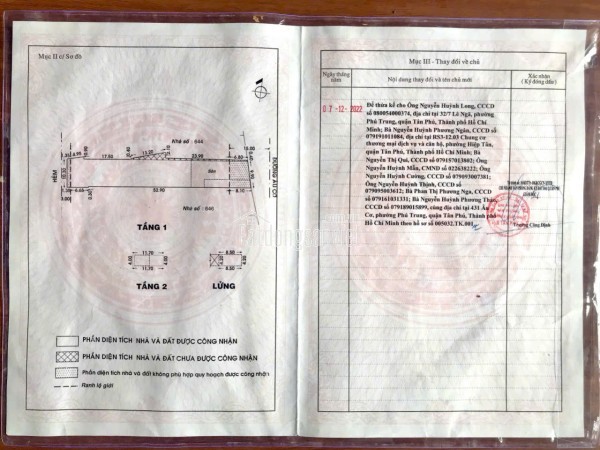 Mục II c/ Sơ đồ
17.50
23.90
Nhà số : 644
6.50
HẺM
ĐƯỜNG ÂU CƠ
6.66
53.90
8.10
Nhà số : 646
TẦNG 1
11.70
4.00
4.00
11.70
8.80
4.00
8.80
TẦNG 2
LỬNG
PHẦN DIỆN TÍCH NHÀ VÀ ĐẤT ĐƯỢC CÔNG NHẬN
PHẦN DIỆN TÍCH NHÀ VÀ ĐẤT CHƯA ĐƯỢC CÔNG NHẬN
Phần diện tích nhà và đất không phù hợp quy hoạch được công nhận
Ranh lộ giới
Mục III - Thay đổi về chủ
Ngày tháng năm
Nội dung thay đổi và tên chủ mới
Xác nhận
(Ký đóng dấu)
07-12-2022
Để thừa kế cho Ông Nguyễn Huỳnh Long, CCCD
số 080054000374, địa chỉ tại 32/7 Lê Ngã, phường
Phú Trung, quận Tân Phú, Thành phố Hồ Chí
Minh; Bà Nguyễn Huỳnh Phương Ngân, CCCD số
079191011084, địa chỉ tại RS3-12.03 Chung cư
thương mại dịch vụ và căn hộ, phường Hiệp Tân,
quận Tân Phú, Thành phố Hồ Chí Minh; Bà
Nguyễn Thị Quí, CCCD số 079157013802; Ông
Nguyễn Huỳnh Mẫn, CMND số 022638222; Ông
Nguyễn Huỳnh Cường, CCCD số 079093007381;
Ông Nguyễn Huỳnh Thịnh, CCCD số
079095003612; Bà Phan Thị Phương Nga, CCCD
số 079161031331; Bà Nguyễn Huỳnh Phương Thảo,
CCCD số 079189015899, cùng địa chỉ tại 431 Âu
Cơ, phường Phú Trung, quận Tân Phú, Thành phố
Hồ Chí Minh theo hồ sơ số 005032.TK.001
Trương Công Định